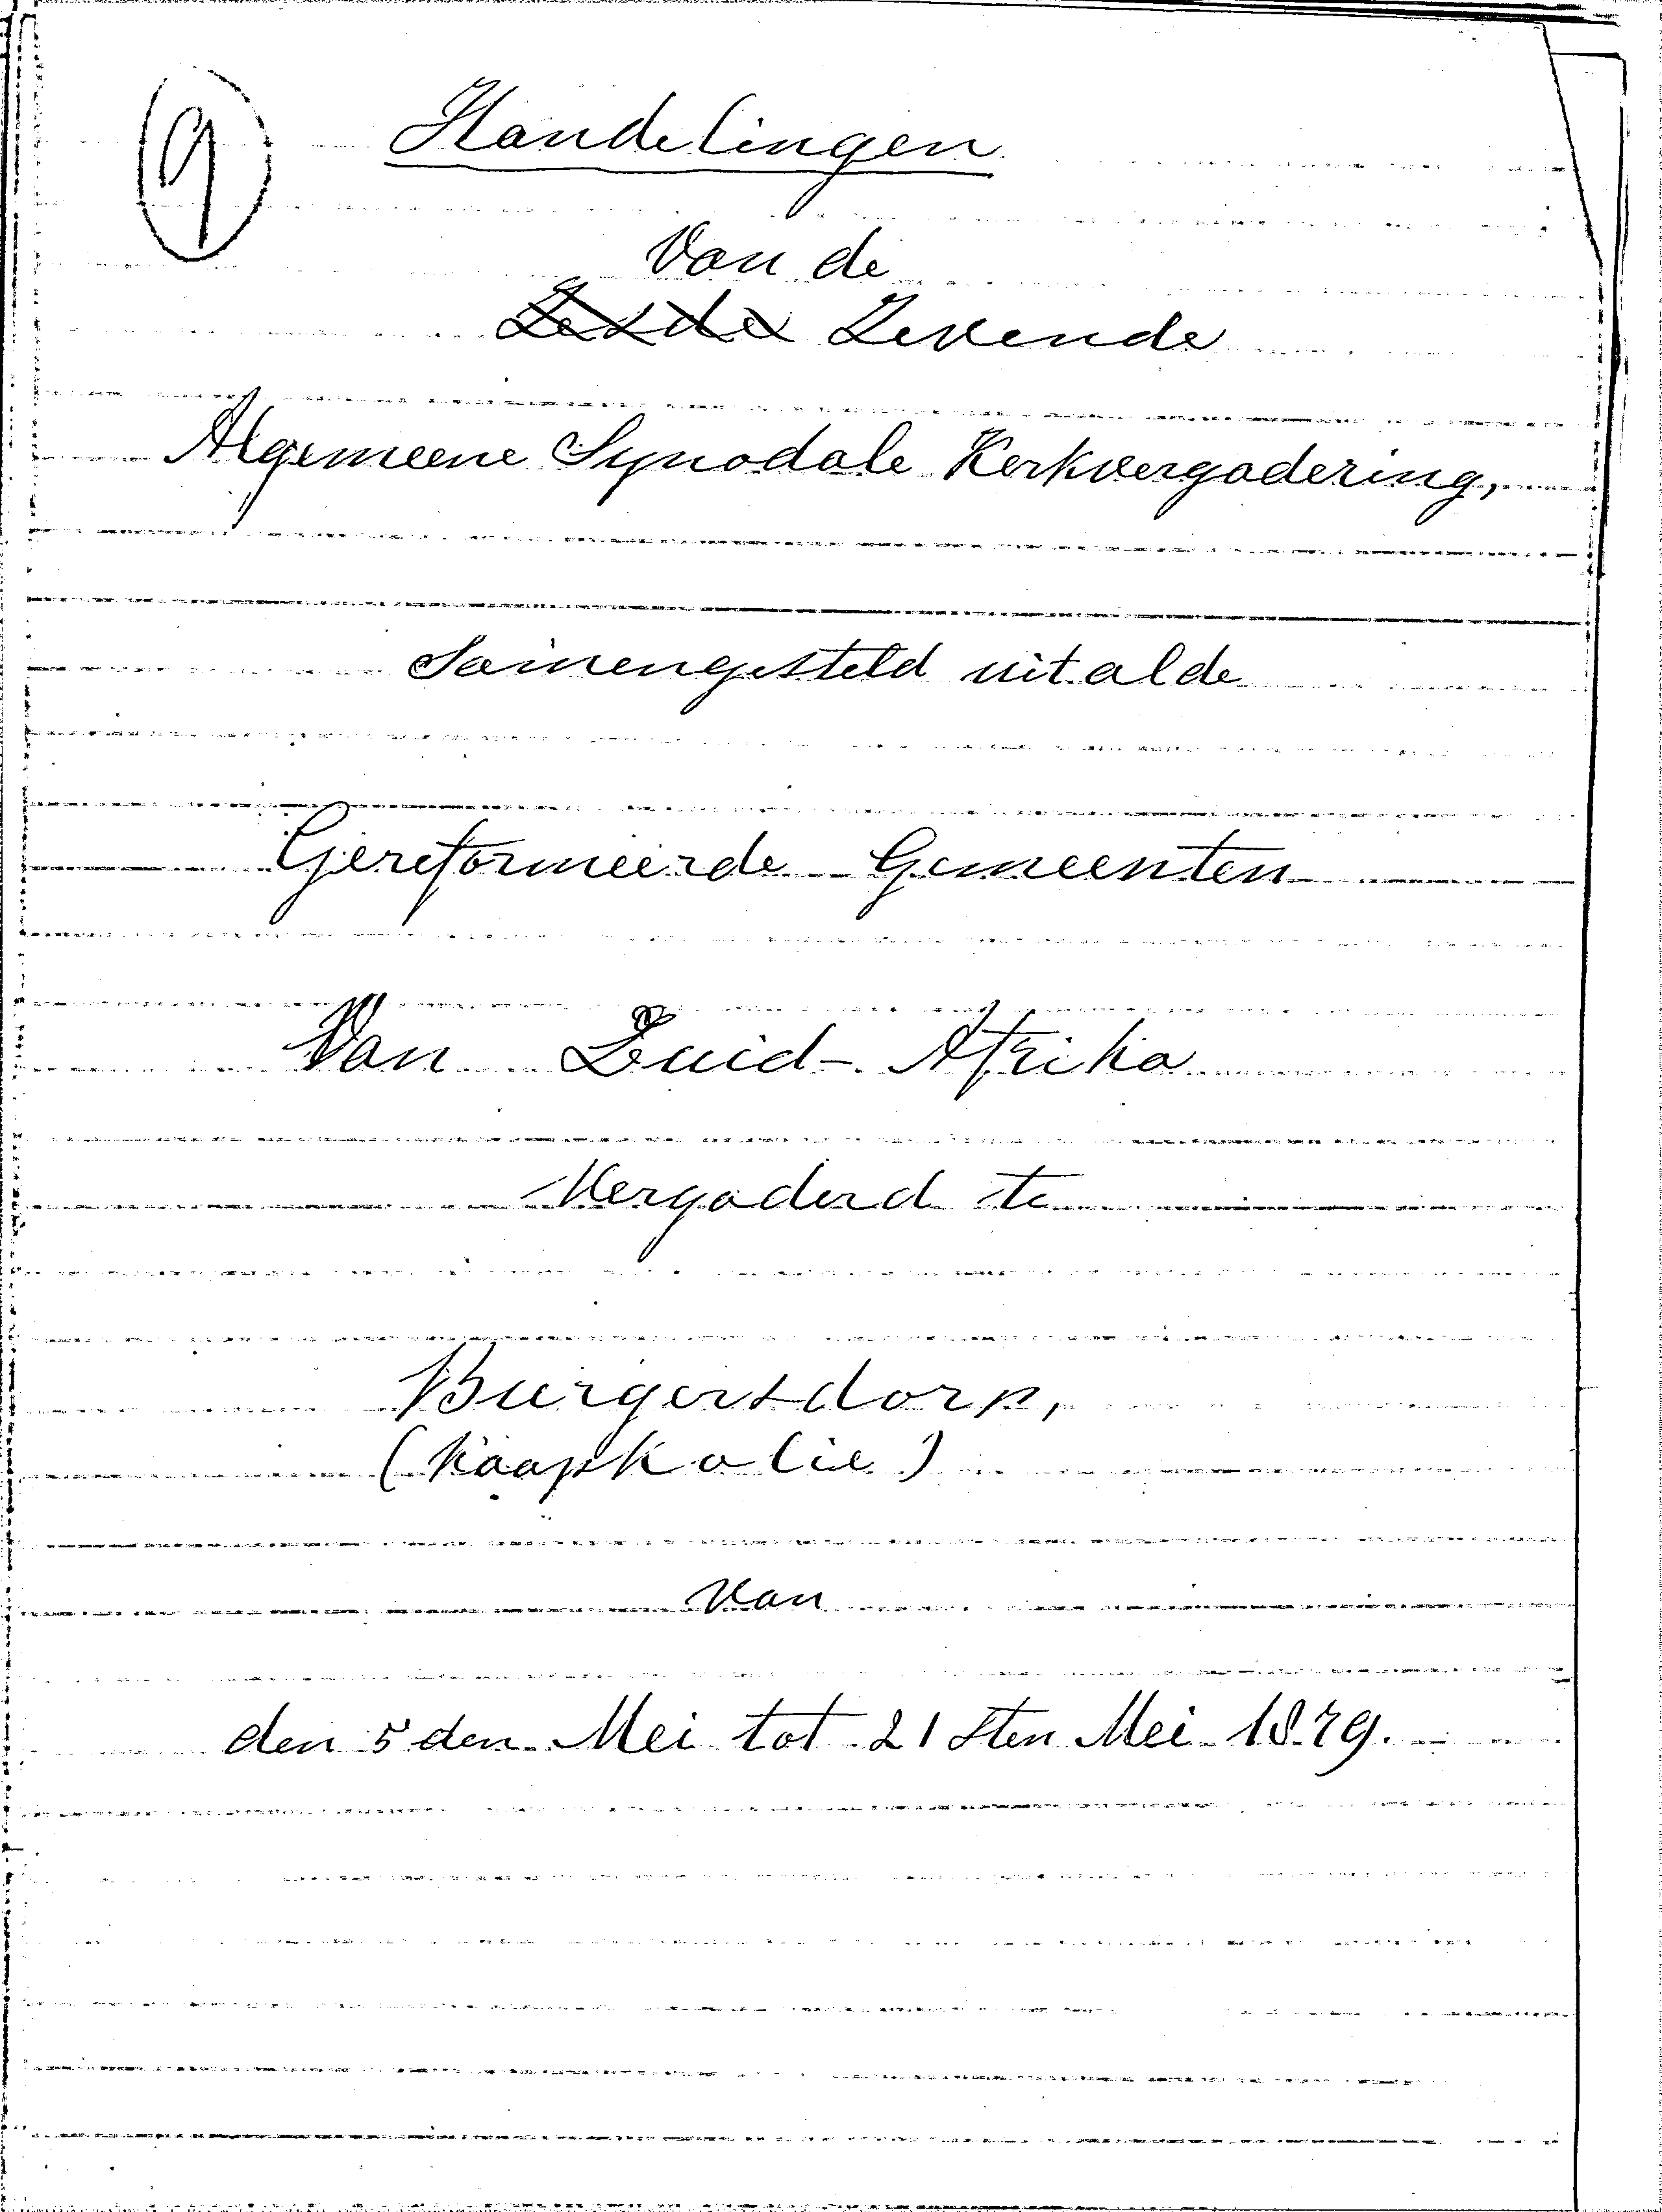 9
Handelingen
Van de
Zesde Zevende
Algemeene Synodale Kerkvergadering,
Samengesteld uit al de
Gereformeerde Gemeenten
Van Zuid-Afrika
Vergaderd te
Burgersdorp,
(Kaapkolie)
Van
den 5 den Mei tot 21 Sten Mei 1879.